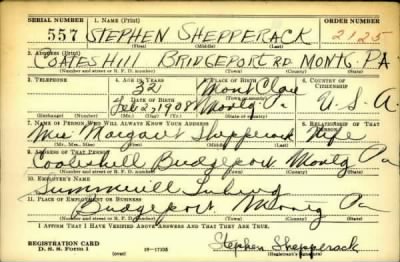 SERIAL NUMBER 1. NAME (Print) ORDER NUMBER
557 STEPHEN SHEPPERACK 2125
(First) (Middle) (Last)
2. ADDRESS (Print)
COATES HILL BRIDGEPORT RD MONTG. PA
(Number and street or R. F. D. number) (Town) (County) (State)
3. TELEPHONE 4. AGE IN YEARS 5. PLACE OF BIRTH 6. COUNTRY OF CITIZENSHIP
32 Mont Clare
DATE OF BIRTH
Feb 2 1908 U. S. A.
(Exchange) (Number) (Mo.) (Day) (Yr.) (State or country)
7. NAME OF PERSON WHO WILL ALWAYS KNOW YOUR ADDRESS 8. RELATIONSHIP OF THAT PERSON
Mrs Margaret Shepperack Wife
(Mr., Mrs., Miss) (First) (Middle) (Last)
9. ADDRESS OF THAT PERSON
Coateshill Bridgeport Montg Pa
(Number and street or R. F. D. number) (Town) (County) (State)
10. EMPLOYER'S NAME
Summerill Tubing
11. PLACE OF EMPLOYMENT OR BUSINESS
Bridgeport Montg Pa
(Number and street or R. F. D. number) (Town) (County) (State)
I AFFIRM THAT I HAVE VERIFIED ABOVE ANSWERS AND THAT THEY ARE TRUE.
REGISTRATION CARD
D. S. S. Form 1 (over) 16—17105 Stephen Shepperack
(Registrant's signature)